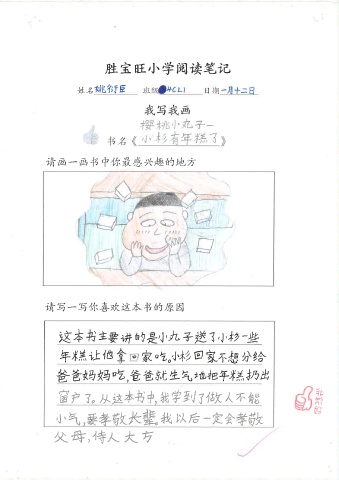 胜宝旺小学阅读笔记
姓名 班级 4CL1 日期 一月十二日
我写我画
樱桃小丸子—
书名《小杉有年糕了》
请画一画书中你最感兴趣的地方
请写一写你喜欢这本书的原因
这本书主要讲的是小丸子送了小杉一些
年糕让他拿回家吃。小杉回家不想分给
爸爸妈妈吃,爸爸就生气地把年糕扔出
窗户了。从这本书中,我学到了做人不能
小气,要孝敬长辈。我以后一定会孝敬
父母,侍人大方